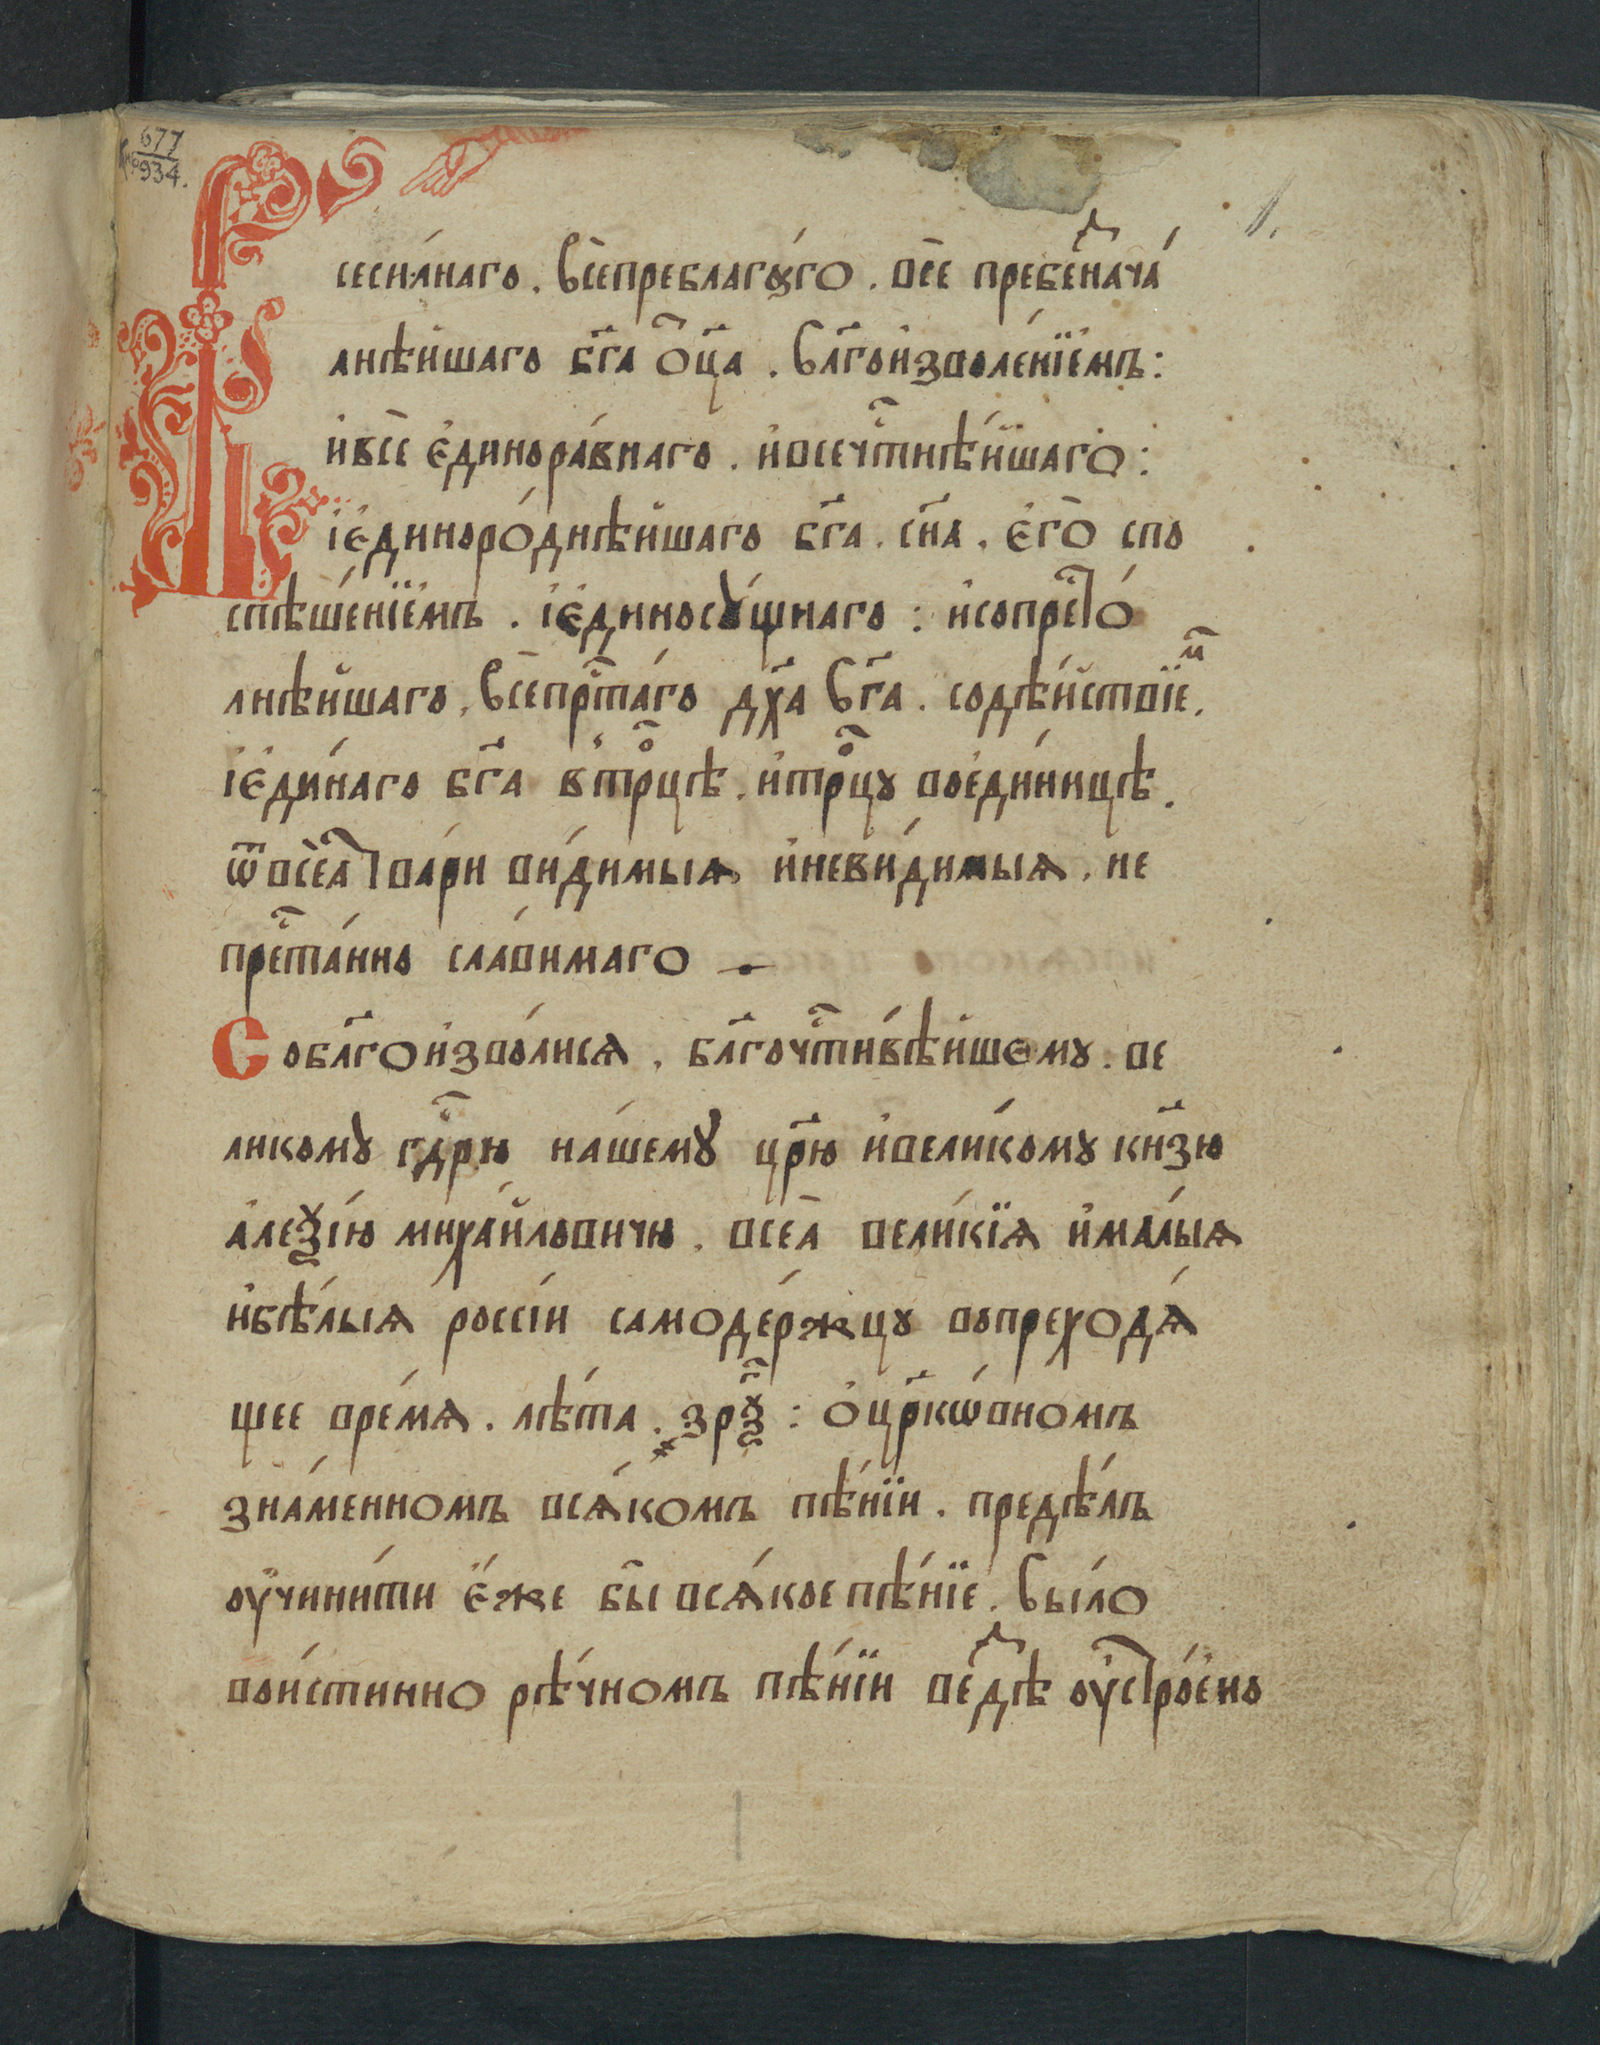 Кно 677
934.
1.
Всеси́лнаго . всепреблага́гѡ . все пребезⷣнача́
лнѣйшаго бг҃а ѻ҆ц҃а . бл҃гоизволе́нїемъ :
и҆ все є҆динора́внаго . и҆ всечтⷭ҇нѣ́йшаго :
і҆є҆диноро́днѣйшаго бг҃а . сн҃а . є҆го̀ спо
спѣше́нїемъ . і҆є҆диносꙋ́щнаго : и҆ сопрⷭ҇то́
лнѣйшаго , всепрⷭ҇та́го дх҃а бг҃а . содѣ́йствїеⷨ .
і҆є҆ди́наго бг҃а в̾ трⷪ҇цѣ . и҆ трⷪ҇цꙋ вое҆ди́ницѣ .
ѿ всеѧ̀ тва́ри ви́димыѧ и҆ неви́димыѧ . не
прⷭ҇та́нно славимаго
Собл҃гоизво́лисѧ . бл҃гочтⷭ҇и́внѣйшемꙋ . ве
ликомꙋ гдⷭ҇рю на́шемꙋ цр҃ю и҆ вели́комꙋ кн҃зю
а҆леѯі́ю миха́йловичю . всеѧ̀ вели́кїѧ и҆ ма́лыѧ
и҆ бѣ́лыѧ россі́и самоде́ржцꙋ вопреходѧ́
щее вре́мѧ . лѣ́та . ҂зрѯⷱ҇ : ѻ҆ цр҃кѡ́вномъ
зна́менномъ всѧ́комъ пѣ́нїи . предѣ́лъ
оу҆чини́ти є҆́же бы̀ всѧ́кое пѣ́нїе . бы́ло
вои́стинно рѣ́чномъ пѣ́нїи везⷣѣ оу҆стро́ено